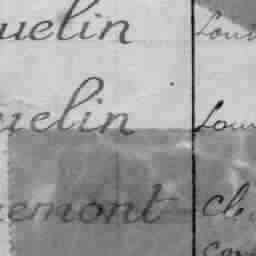 uelin Loui
uelin Lou
emont Cle